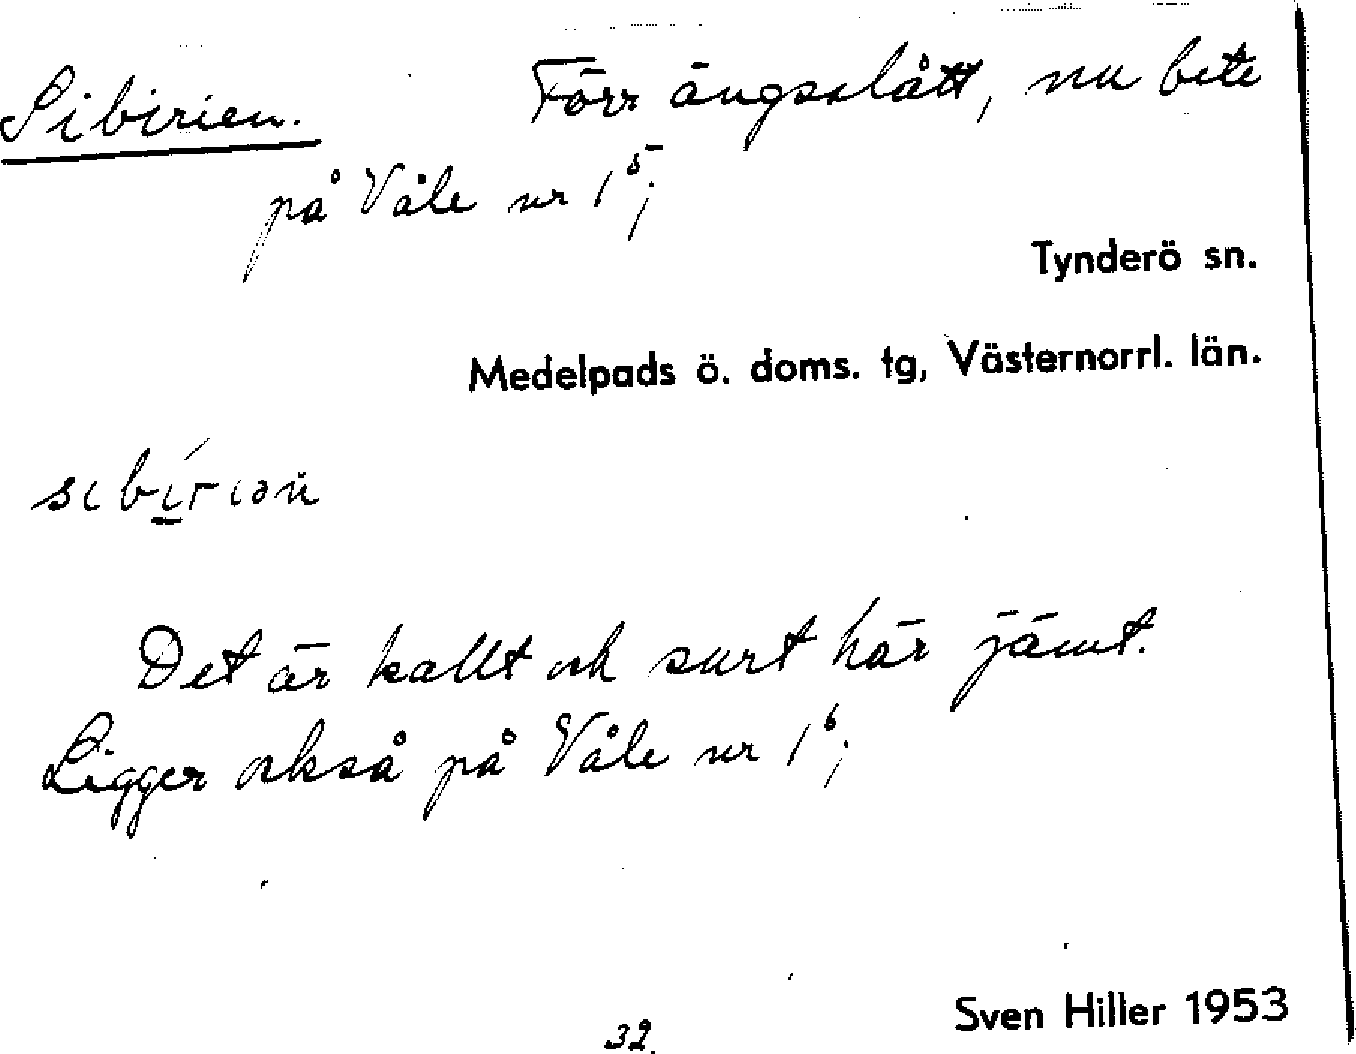 Sibirien. Förr ängsslått, nu bete
på Våle nr 1⁵;
Tynderö sn.
Medelpads ö. doms. tg, Västernorrl. län.
sibíriən
Det är kallt och surt här jämt.
Ligger också på Våle nr 1⁶;
32.
Sven Hiller 1953